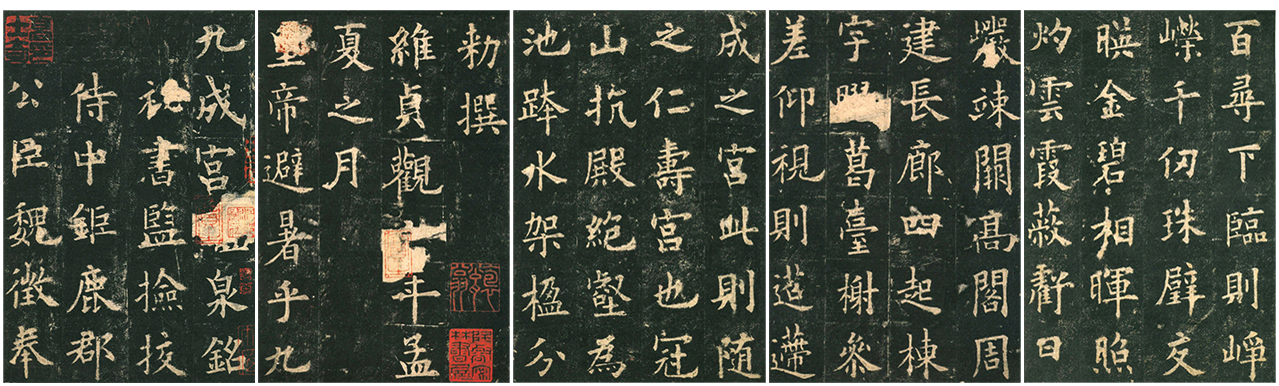 九成宮泉銘
秘書監撿挍
侍中鉅鹿郡
公臣魏徵奉
勑撰
維貞觀年孟
夏之月
皇帝避暑乎九
成之宮此則随
之仁壽宮也冠
山抗殿絕壑為
池跨水架楹分
巖竦闕高閣周
建長廊四起棟
宇葛臺榭參
差仰視則迢遰
百尋下臨則崢
嶸千仞珠璧交
暎金碧相暉照
灼雲霞蔽虧日